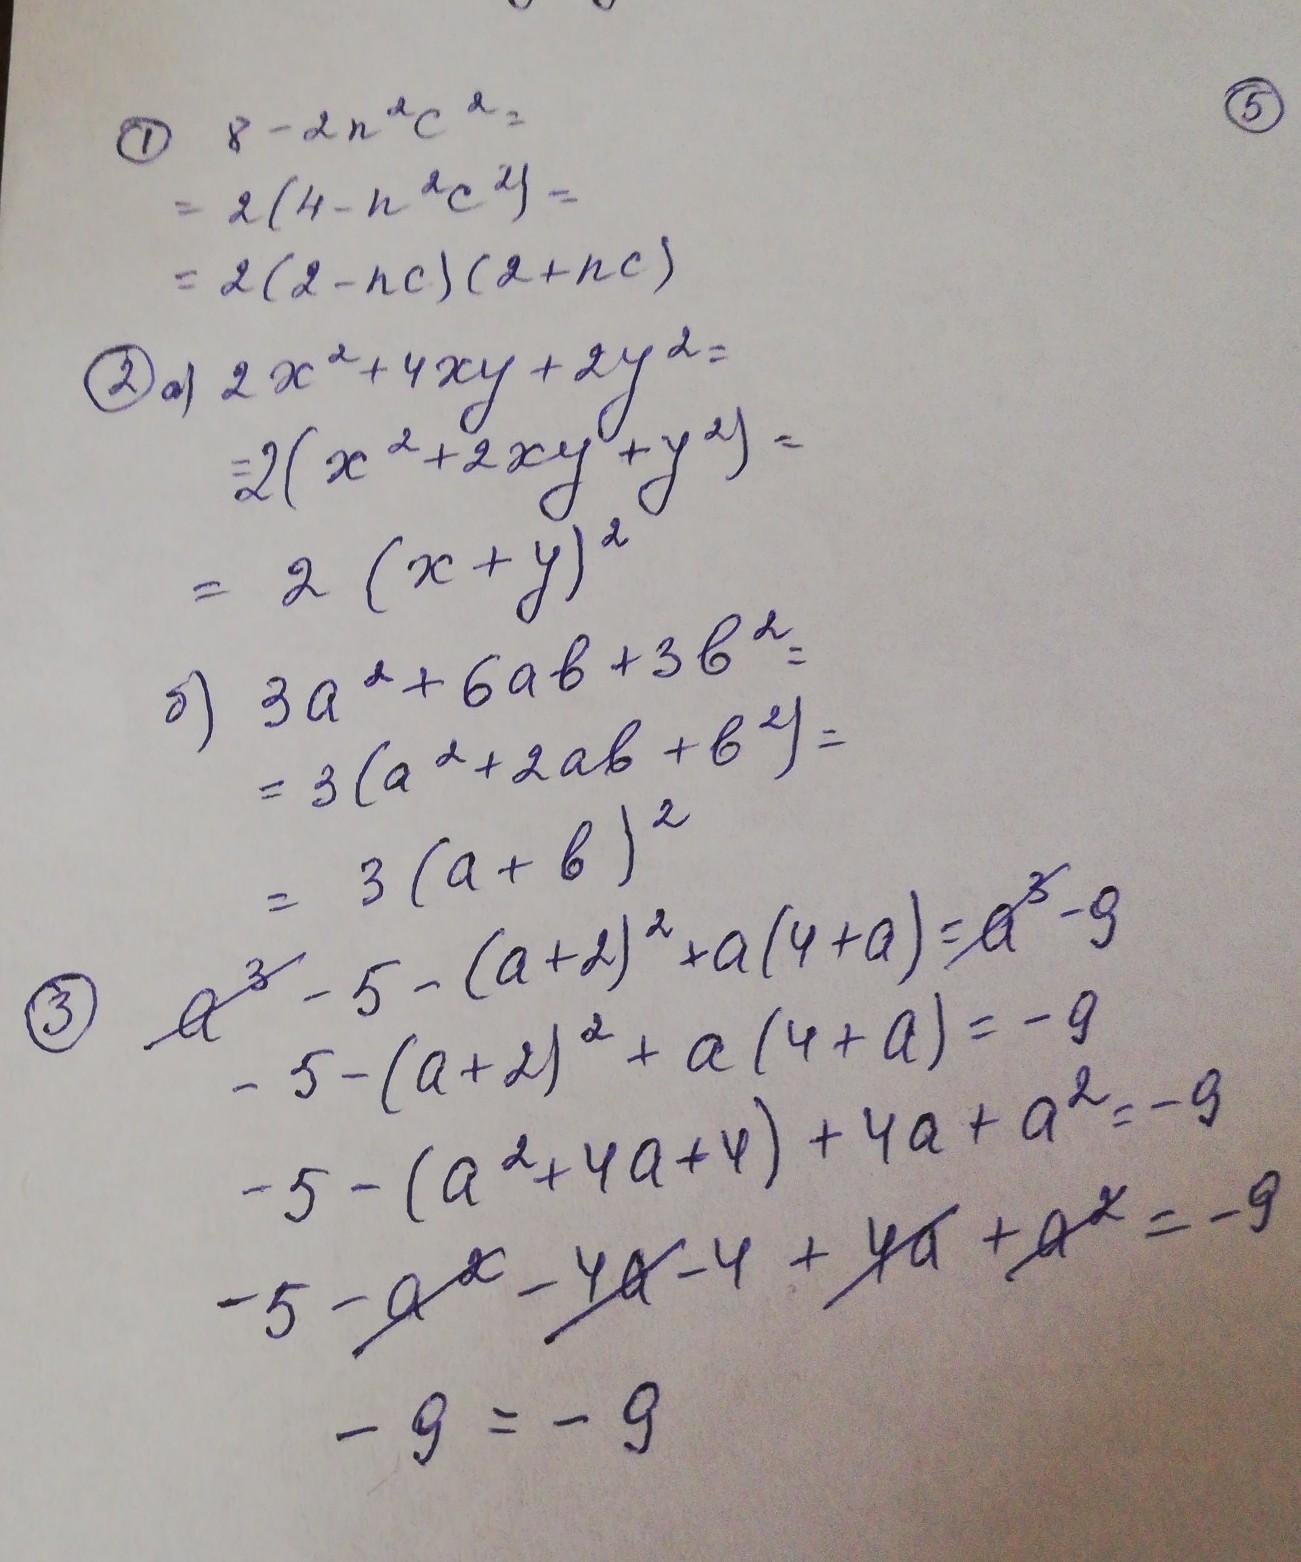 ① 8 - 2n²c² =
= 2(4 - n²c²) =
= 2(2 - nc)(2 + nc)
② а) 2x² + 4xy + 2y² =
= 2(x² + 2xy + y²) =
= 2 (x + y)²
б) 3a² + 6ab + 3b² =
= 3(a² + 2ab + b²) =
= 3(a + b)²
③ a³ - 5 - (a+2)² + a(4+a) = a³ - 9
- 5 - (a+2)² + a(4+a) = - 9
- 5 - (a² + 4a + 4) + 4a + a² = - 9
- 5 - a² - 4a - 4 + 4a + a² = - 9
- 9 = - 9
⑤